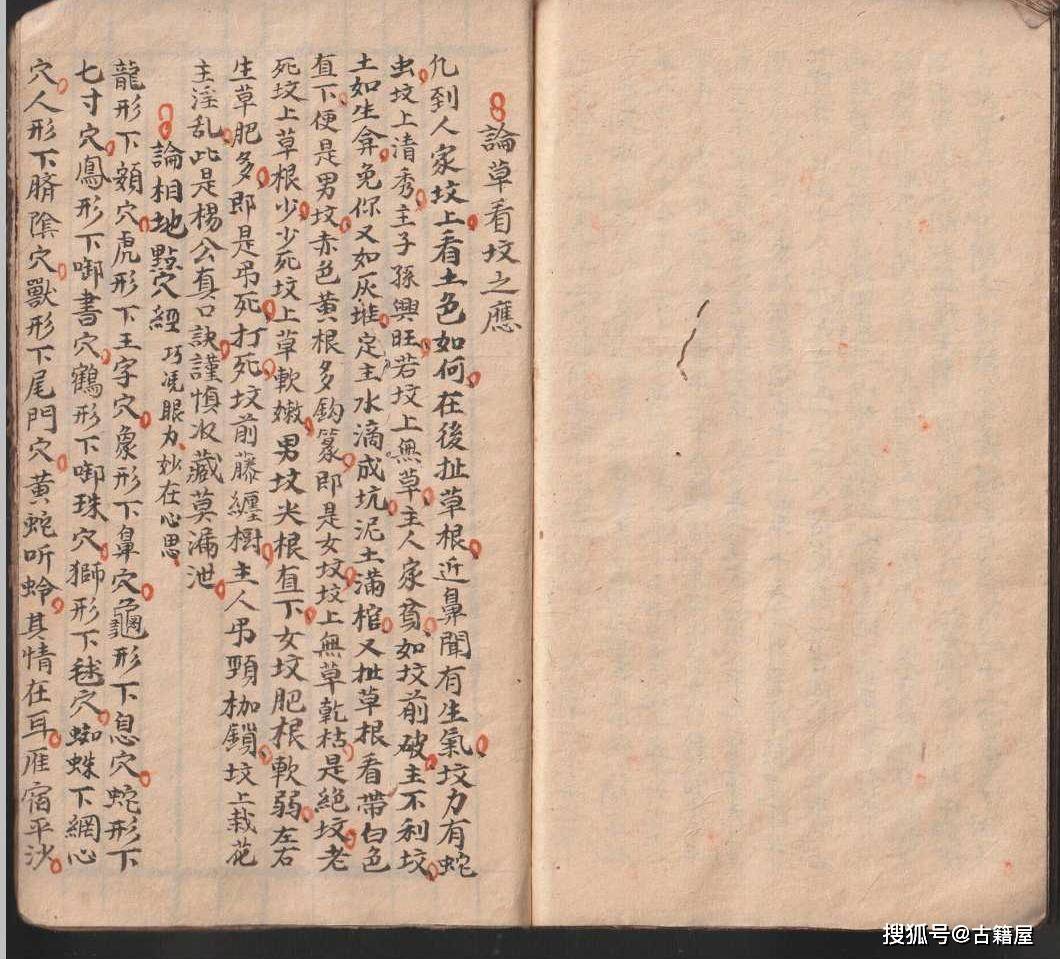 論草看坟之應
凢到人家坟上看土色如何在後扯草根近鼻聞有生氣坟力有蛇
虫坟上清秀主子孫興旺若坟上無草主人家貧如坟前破主不利坟
土如生弇免你又如灰堆定主水滴成坑泥土滿棺又扯草根看帶白色
直下便是男坟赤色黃根多鈎篆即是女坟坟上無草乾枯是絕坟老
死坟上草根少少死坟上草軟嫩男坟尖根直下女坟肥根軟弱左右
生草肥多即是吊死打死坟前藤纏樹主人吊頸枷鎖坟上栽花
主淫乱此是楊公真口訣謹慎收藏莫漏泄
論相地點穴經 巧凴眼力妙在心思
龍形下頦穴虎形下王字穴象形下鼻穴龜形下息穴蛇形下
七寸穴鳳形下啣書穴鶴形下啣珠穴獅形下毬穴蜘蛛下網心
穴人形下臍陰穴獸形下尾門穴黃蛇听蛤其情在耳雁宿平沙
搜狐号@古籍屋